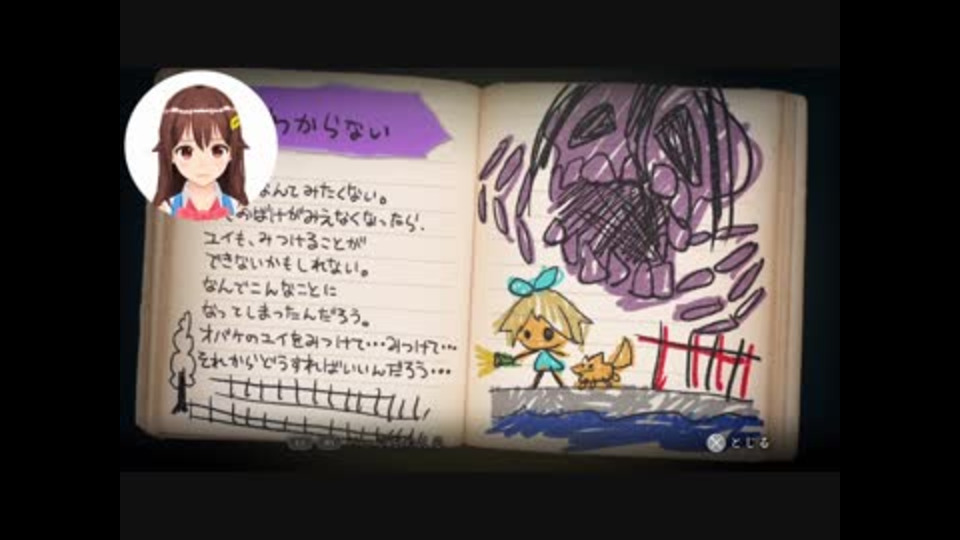 わからない
なんてみたくない。
おばけがみえなくなったら、
ユイも、みつけることが
できないかもしれない。
なんでこんなことに
なってしまったんだろう。
オバケのユイをみつけて・・・みつけて・・・
それからどうすればいいんだろう・・・
とじる